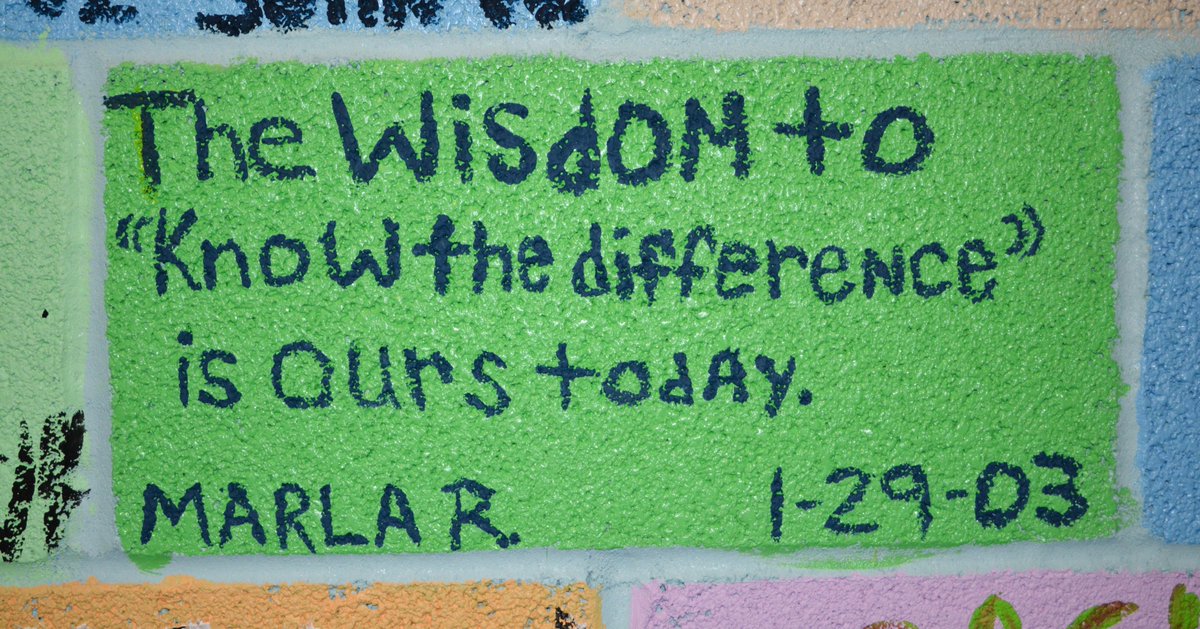 The Wisdom to
"Know the difference"
is ours today.
MARLA R. 1-29-03